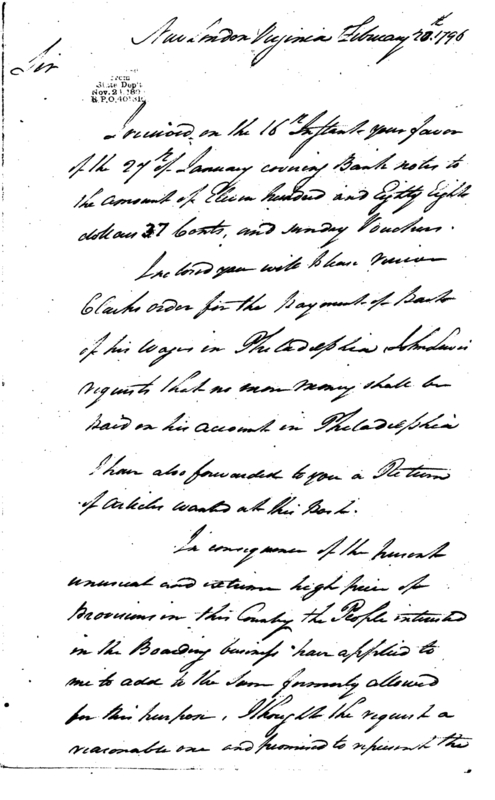 New London Virginia February 20th. 1796
Sir
From
State Dep't
Nov. 21 189
I received on the 16th Instant your favor
of the 27th of January covering Bank notes to
the amount of Eleven hundred and Eighty Eight
dollars 37 Cents, and sundry Vouchers.
Inclosed you will please receive
Clarks order for the payment of Part
of his Wages in Philadelphia John Lewis
requests that no more money shall be
paid on his account in Philadelphia
I have also forwarded to you a Return
of articles wanted at this Post.
In consequence of the present
unusual and extreme high price of
Provisions in this County the People intrusted
in the Boarding business have applied to
me to add to the sum formerly allowed
for this purpose, I thought the request a
reasonable one and promised to represent the